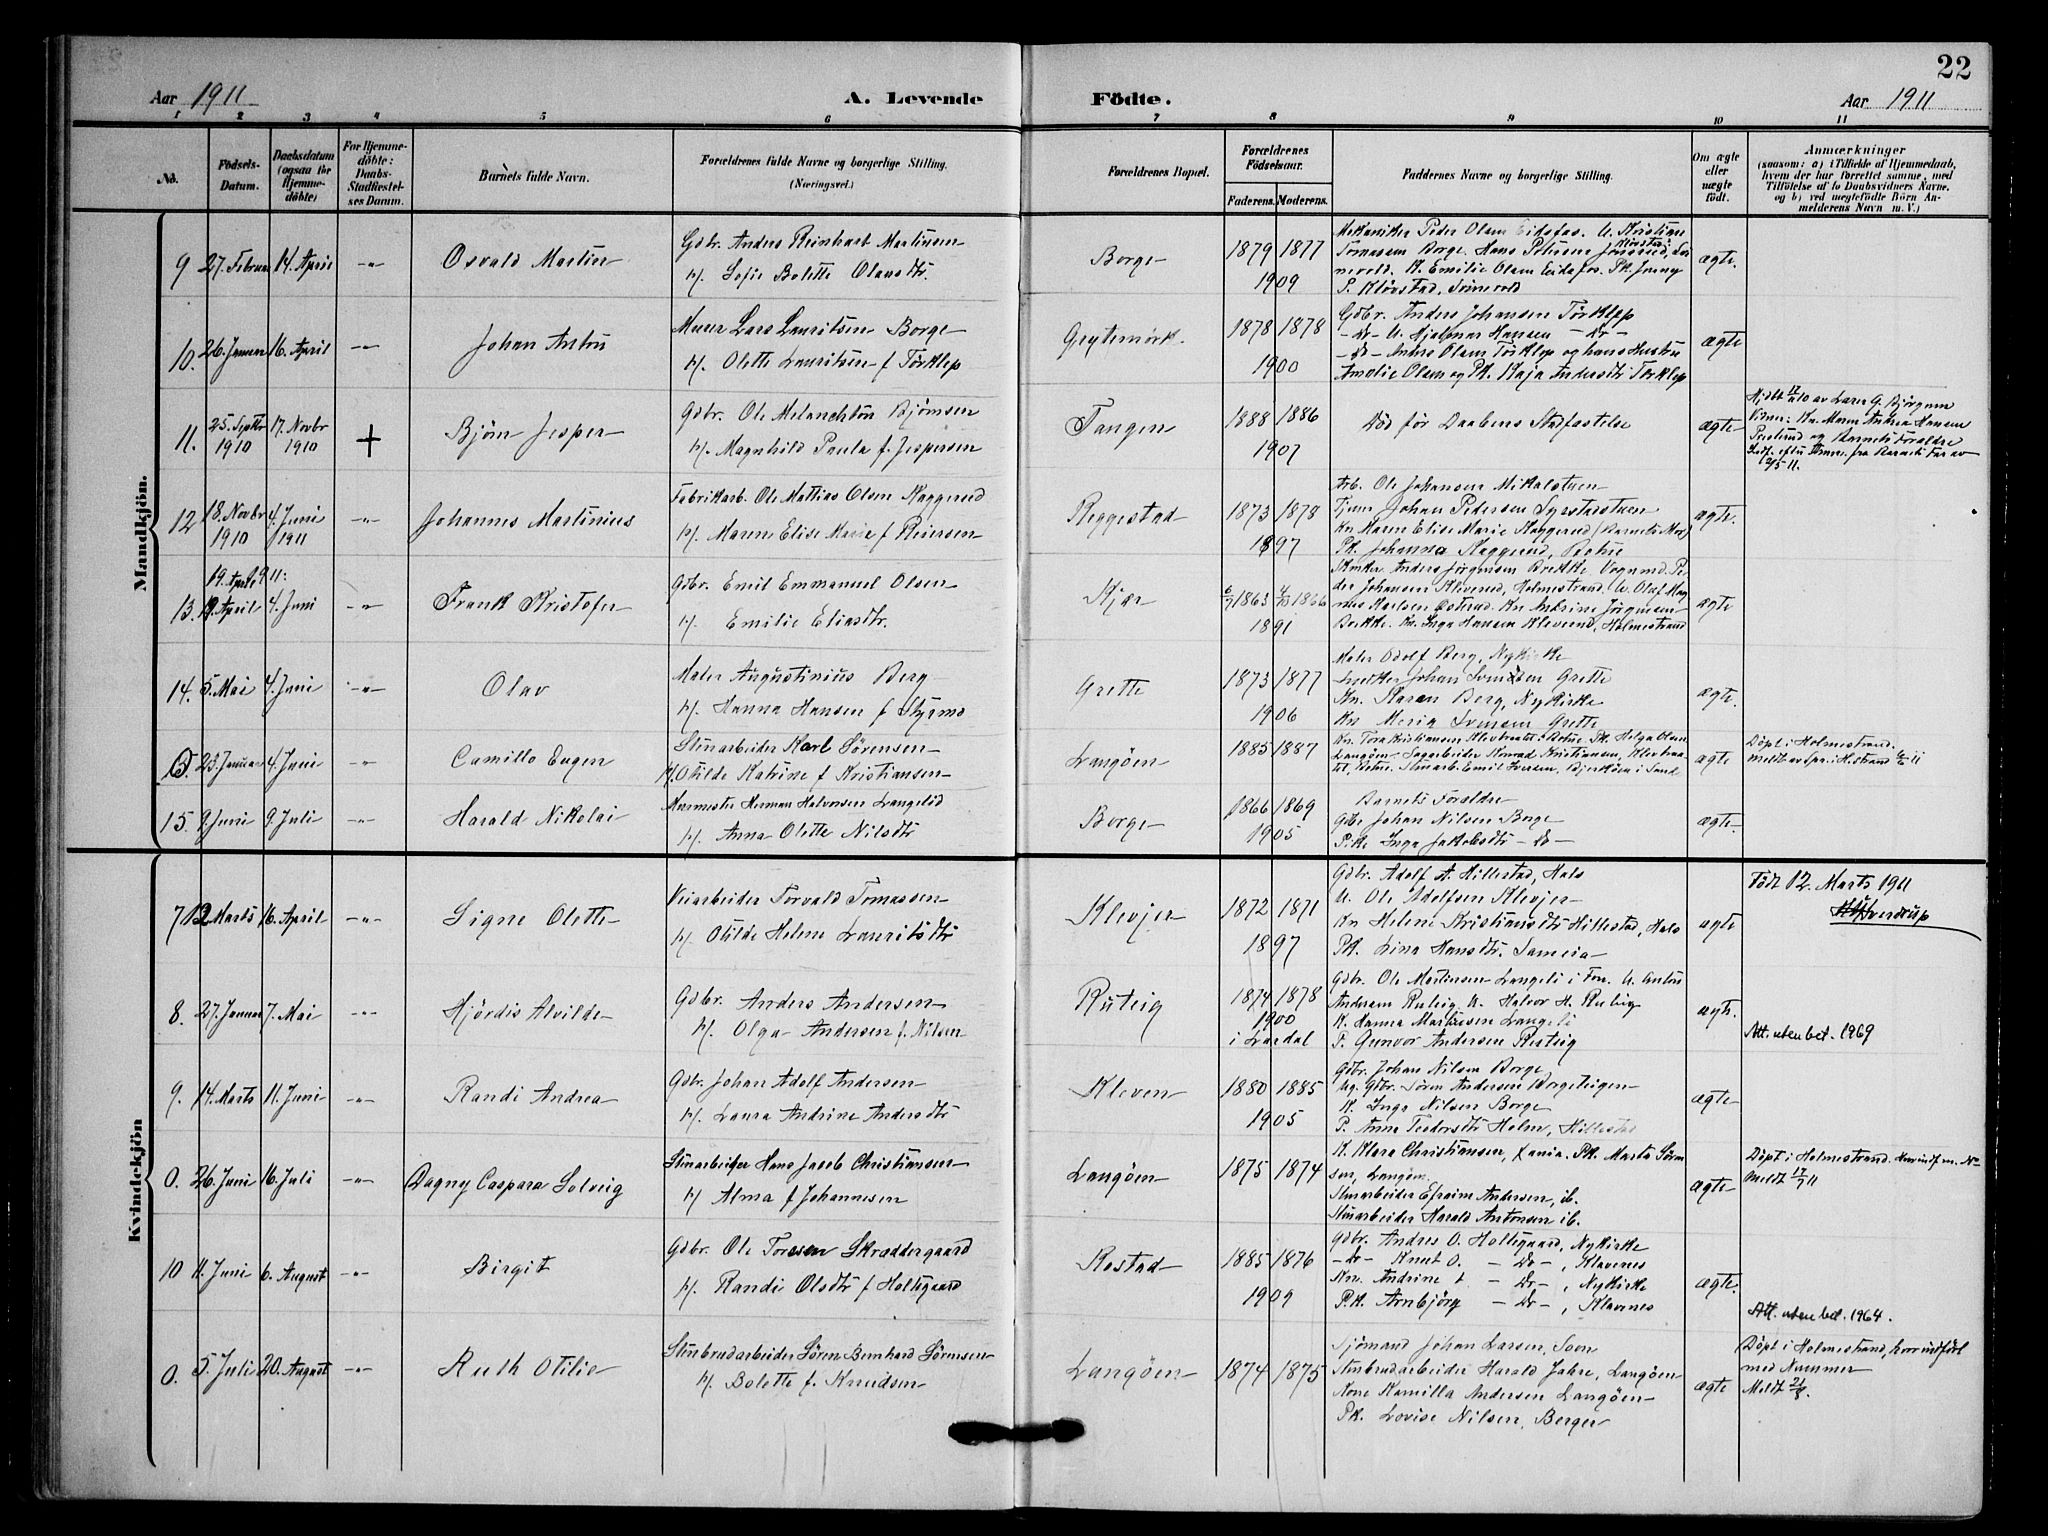 22
Aar 1911
A. Levende
Födte.
Aar 1911
1 2 3 4 5 6 7 8 9 10 11
No.
Födsels-
Datum.
Daabsdatum
(ogsaa for
Hjemme-
döbte)
For Hjemme-
döbte:
Daabs-
Stadfæstel-
ses Datum.
Barnets fulde Navn.
Forældrenes fulde Navne og borgerlige Stilling.
(Næringsvei.)
Forældrenes Bopæl.
Forældrenes
Födselsaar.
Faderens. Moderens.
Faddernes Navne og borgerlige Stilling.
Om ægte
eller
uægte
födt.
Anmærkninger
(saasom: a) i Tilfælde af Hjemmedaab,
hvem der har forrettet samme, med
Tilföielse af to Daabsvidners Navne,
og b) ved uægtefödte Börn An-
melderens Navn m. V.)
Mandkjön.
9 27. Februar 14. April -"- Osvald Martin
Gdbr. Anders Reinhart Martinsen
H/. Sofie Bolette Olausdtr.
Borge
1879 1877
1909
Mekaniker Peder Olsen Eikefos. U. Kristian
Tomassen Borge. Hans Petersen
K. Emilie Olsen Eikefos. Pk. Jenny
P. Klövstad,
ægte.
10. 26. Januar 16. April -"- Johan Anton
Murer Lars Lauritsen Borge
H/. Olette Lauritsen f Törklep
Grytemörk.
1878 1878
1900
Gdbr. Anders Johansen Törklep
-Do- U. Hjalmar Hansen -Do-
-Do- Anders Olsen Törklep og hans Hustru
Amalie Olsen og Pk. Kaja Andersdtr Törklep
ægte
11. 25. Septbr 1910 17. Novbr 1910 + Björn Jesper
Gdbr. Ole Melanchton Björnsen
H/. Magnhild Paula f. Jespersen
Tangen
1888 1886
1907
Död før Daabens Stadfæstelse
ægte
Hjdbt 17/11 10 av Lærer G. Björgum
Vidner: Kn. Maren Andrea Hansen
og Barnets Forældre
Indf. efter Anm. fra Barnets Far av
2/5 11.
12 18. Novbr 1910 4. Juni 1911 -"- Johannes Martinius
Fabrikarb. Ole Mattias Olsen Kaggerud
H/. Maren Elise Marie f Reiersen
Reggestad
1873 1878
1897
Arb. Ole Johansen Mikalstuen
Johan Pedersen
Kn Maren Elise Marie Kaggerud (Barnets Mor)
Pk. Johanna Kaggerud, Botne
ægte.
19. April 1911:
13. 19. April 4. Juni -"- Frank Kristofer
Gdbr. Emil Emmanuel Olsen
H/. Emilie Eliasdtr.
Kjær
6/7 1863 4/10 1866
1891
Anders Jörgensen Brekke Pe-
der Johansen Kleverud, Holmestrand. U. Olaf Mag-
nus Karlsen Kn Andrine Jörgensen
Brekke. Kn. Inga Hansen Kleverud, Holmestrand
ægte
14. 5. Mai 4. Juni -"- Olav
Maler Augustinius Berg
H/. Hanna Hansen f Styrmo
Grette
1873 1877
1906
Maler Odolf Berg, Nykirke
Snedker Johan Svensen Grette
Kn. Karen Berg, Nykirke
Kn Maria Svensen Grette
ægte.
0. 23. Januar 4. Juni -"- Camillo Eugen
Stenarbeider Karl Sörensen
H/. Otilde Katrine f Kristiansen
Langöen
1885 1887
Kn. Tora Kristiansen Botne. Pk. Helga Olsen
Langöen. Sagarbeider Konrad Kristiansen,
Botne. Stenarb. Emil Iversen, Bjerköen i Sande
ægte
Döpt i Holmestrand.
Meldt av Spr. i Hstrand 6/6 11
15. 9. Juni 9. Juli -"- Harald Nikolai
Murmester Herman Halvorsen Langelid
H/. Anna Olette Nilsdtr
Borge
1866 1869
1905
Barnets Forældre
Gdbr Johan Nilsen Borge
Pike Inga Jakobsdtr -Do-
ægte.
Kvindekjön
7 12 Marts 16. April -"- Signe Olette
Veiarbeider Torvald Tomassen
H/. Otilde Helene Lauritsdtr
Klevjer
1872 1871
1897
Gdbr. Adolf A. Hillestad, Hals
U. Ole Adolfsen Klevjer
Kn Helene Kristiansdtr Hillestad, Hals
Pk. Lina Hansdtr.
ægte
Födt 12. Marts 1911
Sverdrup
8. 27. Januar 7. Mai -"- Hjördis Alvilde
Gdbr. Anders Andersen
H/. Olga Andersen f. Nilsen
Ruteig
1874 1878
1900
i Lardal
Gdbr. Ole Martinsen Langeli i Fon. U. Anton
Andersen Ruteig U. Halvor H. Ruteig
K. Hanna Martinsen Langeli
P. Gunvor Andersen Ruteig
ægte.
Att. uten bet. 1969
9. 14. Marts 11. Juni -"- Randi Andrea
Gdbr. Johan Adolf Andersen
H/. Laura Andrine Andersdtr
Kleven
1880 1885
1905
Gdbr. Johan Nilsen Borge
Ug. Gdbr. Sören Andersen Borgeteigen
K. Inga Nilsen Borge
P. Anna Teodorsdtr Holm, Hillestad
ægte
0. 26. Juni 16. Juli -"- Dagny Caspara Solveig
Stenarbeider Hans Jacob Christiansen
H/ Alma f Johannesen
Langöen
1875 1874
K. Klara Christiansen, Xania. Pk. Marta Sörn
sen, Langöen.
Stenarbeider Efraim Andersen, ib.
Stenarbeider Harald Antonsen ib.
ægte
Döpt i Holmestrand.
Meldt 17/7 11
10 11. Juni 6. August -"- Birgit
Gdbr. Ole Toresen Skræddergaard
H/. Randi Olsdtr f Holtsgaard
Rostad
1885 1876
1909
Gdbr. Andres O. Holtsgaard, Nykirke
-Do- Knut O. -Do-, Klavenes
Kn. Andrine L -Do-, Nykirke
Pk. Arnbjörg -Do-, Klavenes
ægte.
Att. uten bet. 1964.
0. 5. Juli 20. August -"- Ruth Otilie
Stenbrudarbeider Sören Bernhard Sörensen
H/. Bolette f. Knudsen
Langöen
1874 1875
Sjömand Johan Larsen, Soon
Stenbrudarbeider Harald Jahre, Langöen
Kone Kamilla Andersen Langöen
Pk. Lovise Nilsen, Berger
ægte
Döpt i Holmestrand, hvor indfört
med Nummer
Meldt 21/8.